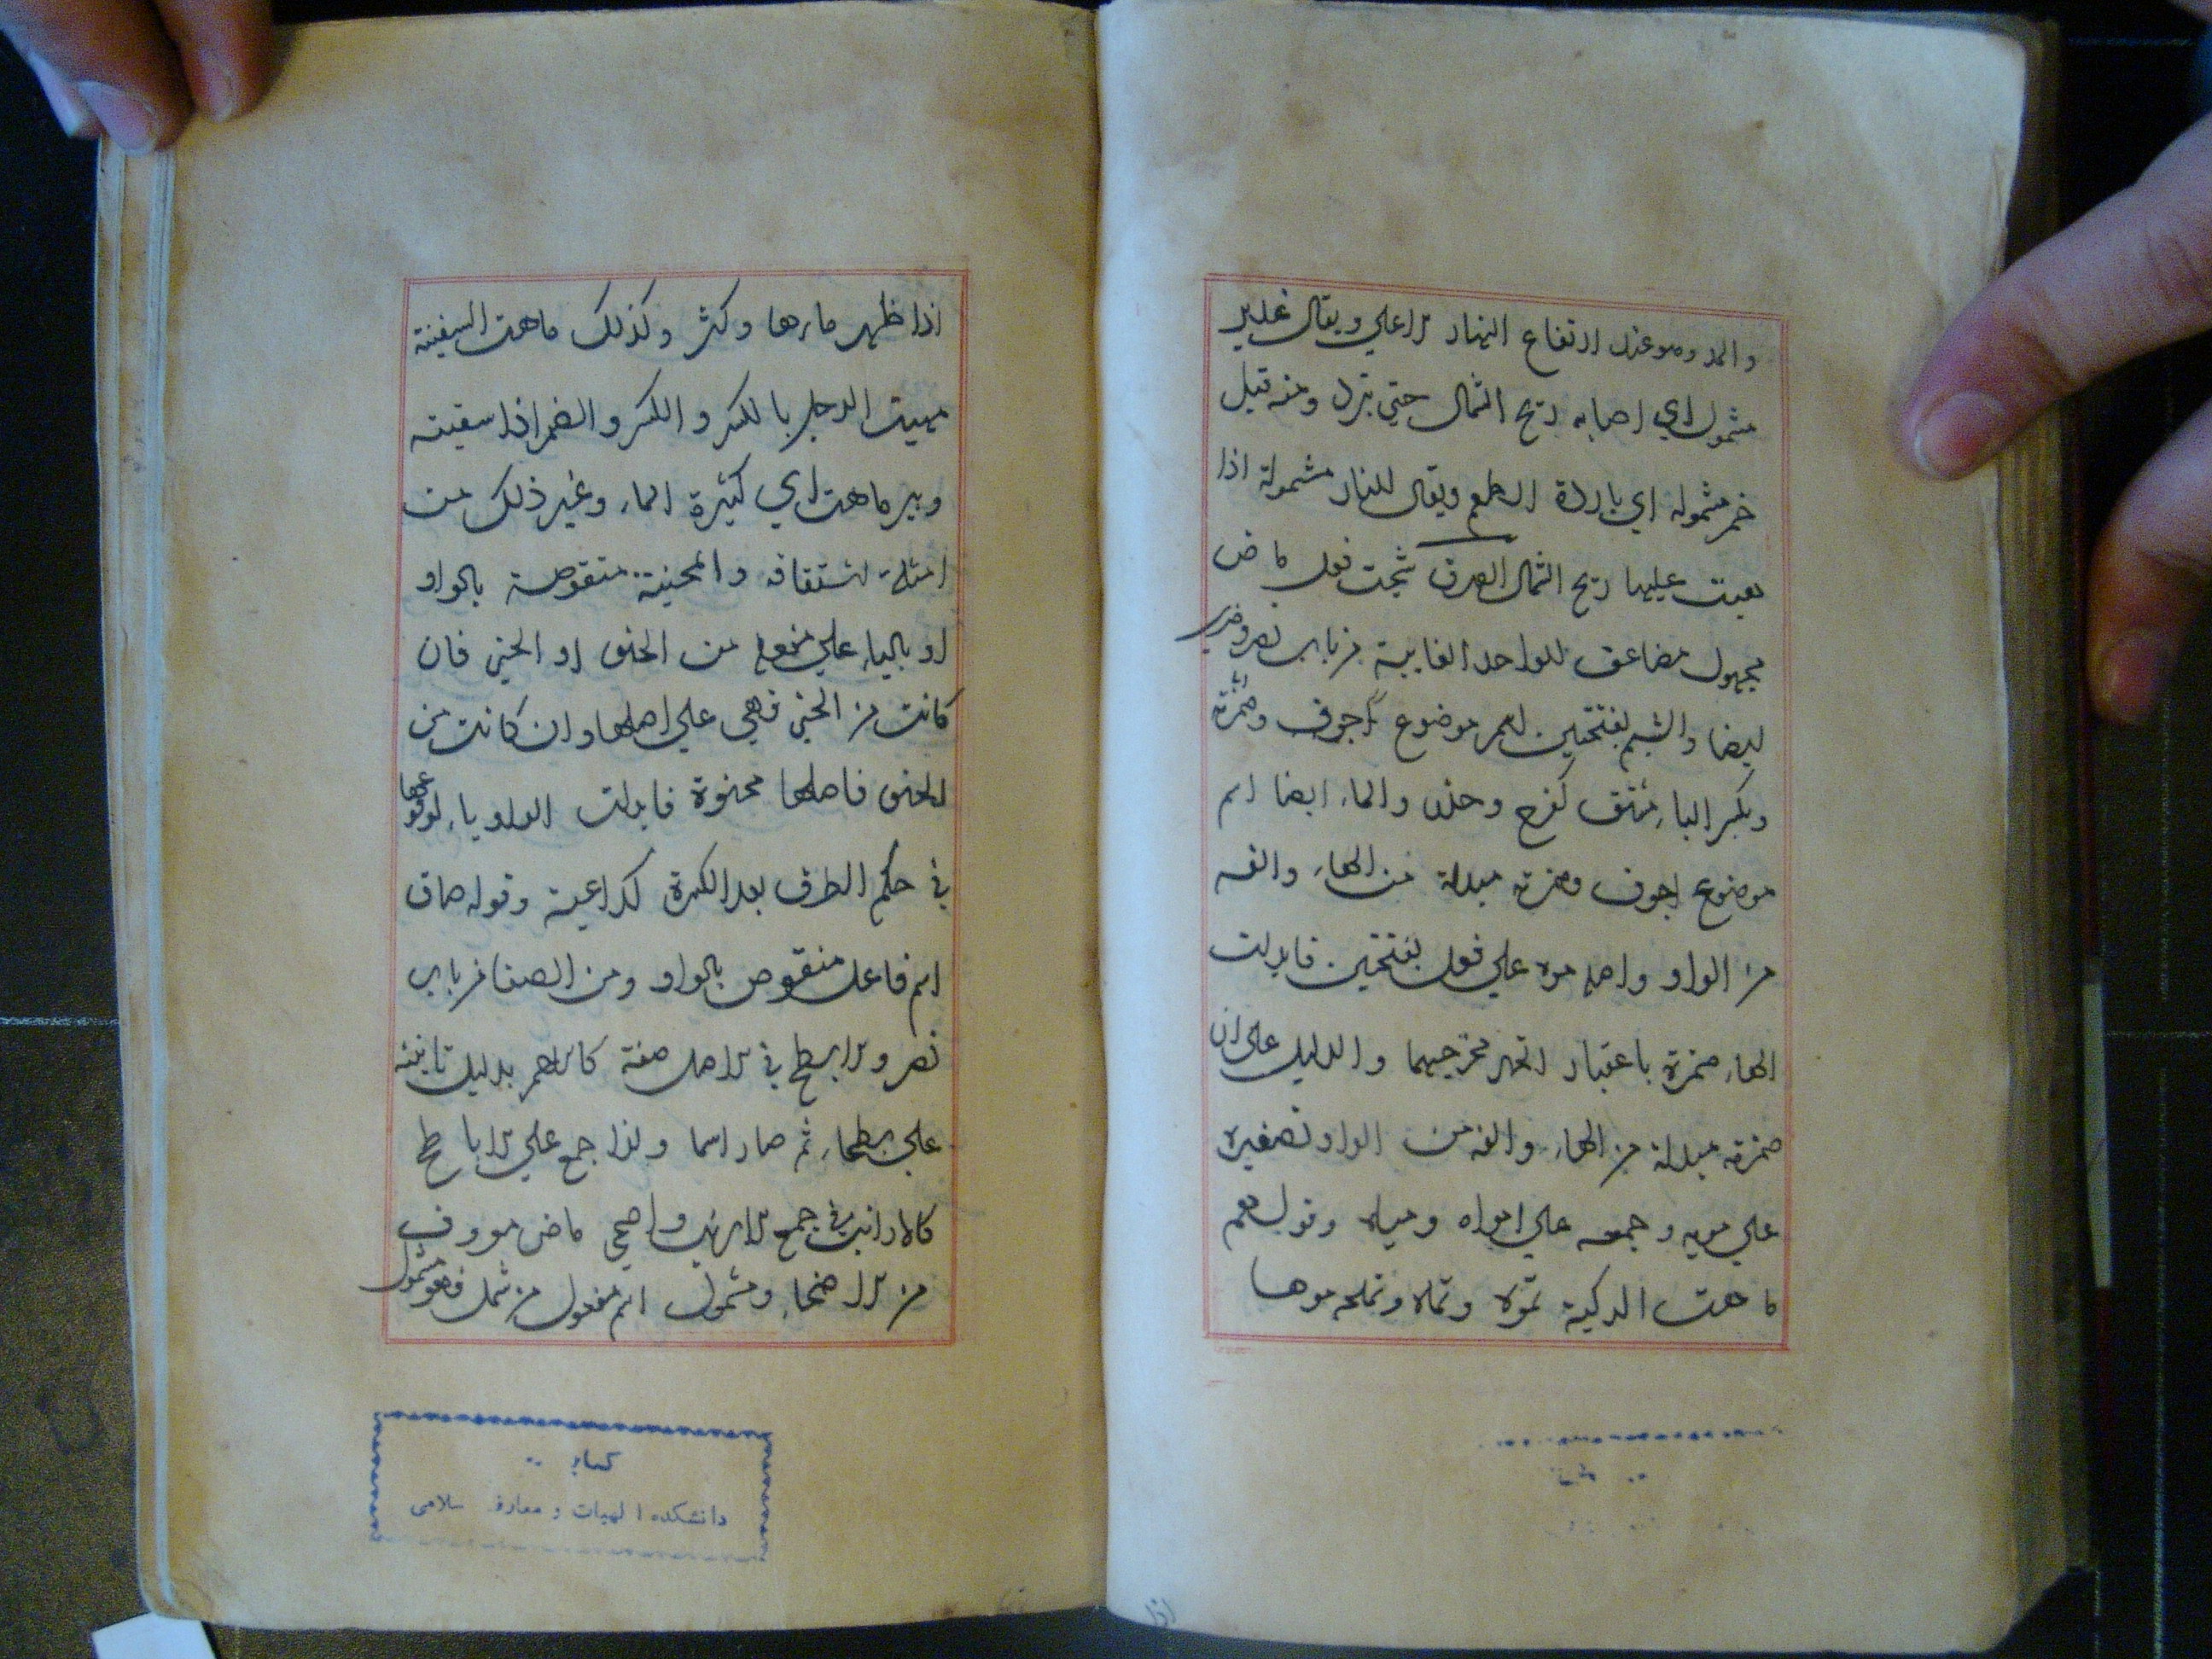 والمد وهو عند ارتفاع النهار الاعلي ويقال غدير
مشمول اي اصابه ريح الشمال حتي تبرد ومنه قيل
خمر مشموله اي باردة الطعم ويقال للنار مشمولة اذا
هبت عليها ريح الشمال الصرف شجت فعل ماض
مجهول مضاعف للواحد الغايبة من باب نصر وضرب
ايضا والشبم بفتحتين اسم موضوع
وبكسر الباء مشتق كفرح وحذر والماء ايضا اسم
موضوع اجوف وهمزته مبدلة من الهاء والفه
من الواو واصله موه علي فعل بفتحتين فابدلت
الهاء همزة باعتبار اتحد مخرجيهما والدليل علي ان
همزته مبدلة من الهاء والفه من الواو تصغيره
علي مويه وجمعه علي امواه ومياه وقولهم
ماهت الركية تموه وتماه وتمله موها
اذا
اذا ظهر ماءها وكثر وكذلك ماهت السفينة
مهيت الرجل بالكسر والكسر والضم اذا سقيته
وبير ماهت اي كثيرة الماء وغير ذلك من
امثلة اشتقاقه والمحنية منقوصة بالواو
او بالياء علي مفعلة من الحنو او الحني فان
كانت من الحني فهي علي اصلها وان كانت من
الحنو فاصلها محنوة فابدلت الواو ياء لوقوعها
في حكم الطرف بعد الكسرة كداعية وقوله صاف
اسم فاعل منقوص بالواو ومن الصفا من باب
نصر والابطح في الاصل صفة كالاحمر بدليل تانيثه
علي بطحاء ثم صار اسما ولذا جمع علي الاباطح
كالارانب في جمع الارنب واضحي ماض معروف
من الاضحاء ومشمول اسم مفعول من شمل فهو مشمول
دانشکده الهیات و معارف سلامی